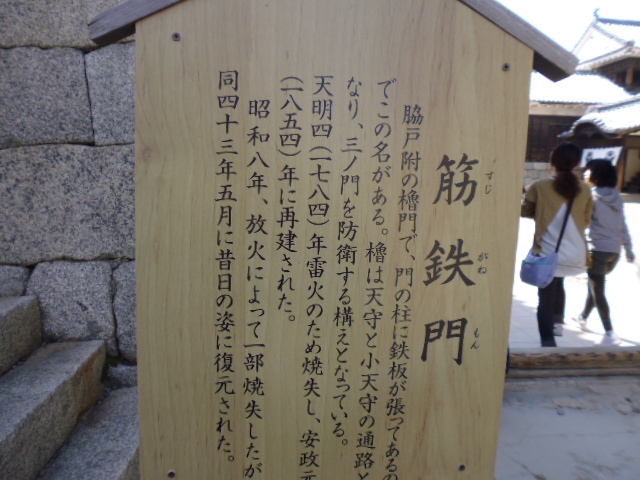 筋鉄門
すじがねもん
脇戸附の櫓門で、門の柱に鉄板が張ってあるの
でこの名がある。櫓は天守と小天守の通路と
なり、三ノ門を防衛する構えとなっている。
天明四(一七八四)年雷火のため焼失し、安政元
(一八五四)年に再建された。
昭和八年、放火によって一部焼失したが
同四十三年五月に昔日の姿に復元された。